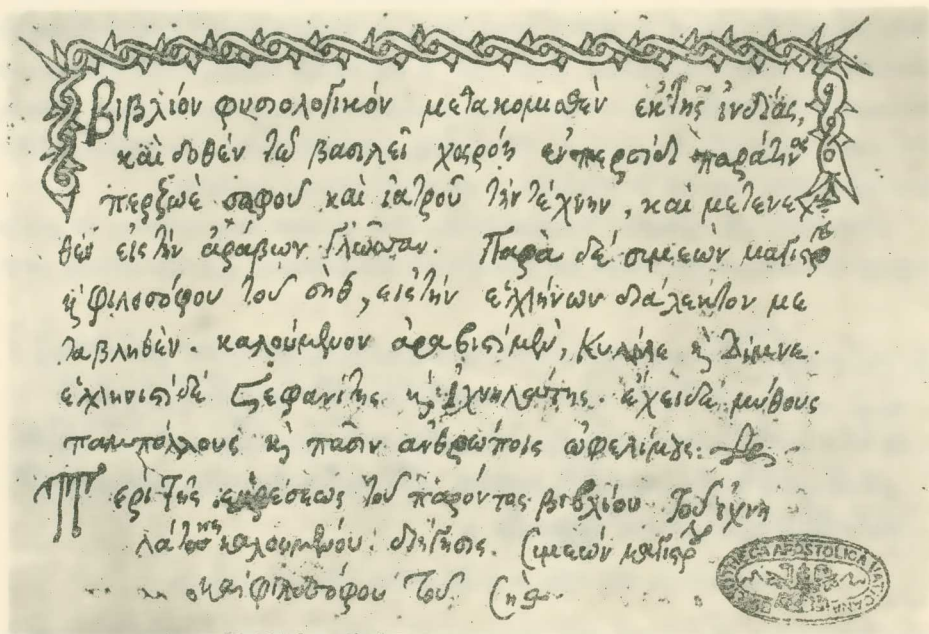 Βιβλίον φυσιολογικόν μετακομισθὲν ἐκ τῆς ἰνδίας,
καὶ δοθὲν τῶ βασιλεῖ χοσρόη ἐν περσίδι παρὰ
περζωὲ σοφοῦ καὶ ἰατροῦ τὴν τέχνην, καὶ μετενεχ
θὲν εἰς τὴν ἀράβων γλῶτταν. Παρὰ δὲ σιμεὼν μαγίστρου
κ φιλοσόφου τοῦ σὴθ, εἰς τὴν ἑλλήνων διάλεκτον με
ταβληθὲν. καλούμενον ἀραβιστὶ μὲν, κυλίλε κ δίμνε.
ἑλληνιστὶ δὲ Στεφανίτης κ ἰχνηλάτης. ἔχει δὲ μύθους
παμπόλλους κ πᾶσιν ἀνθρώποις ὠφελίμους.
Περὶ τῆς ἐκθέσεως τοῦ παρόντος βιβλίου τοῦ ἰχνη
λάτου καλουμένου. διήγησις. Σιμεὼν μαγίστρου
καὶ φιλοσόφου τοῦ Σήθ
BIBLIOTHECA APOSTOLICA VATICANA